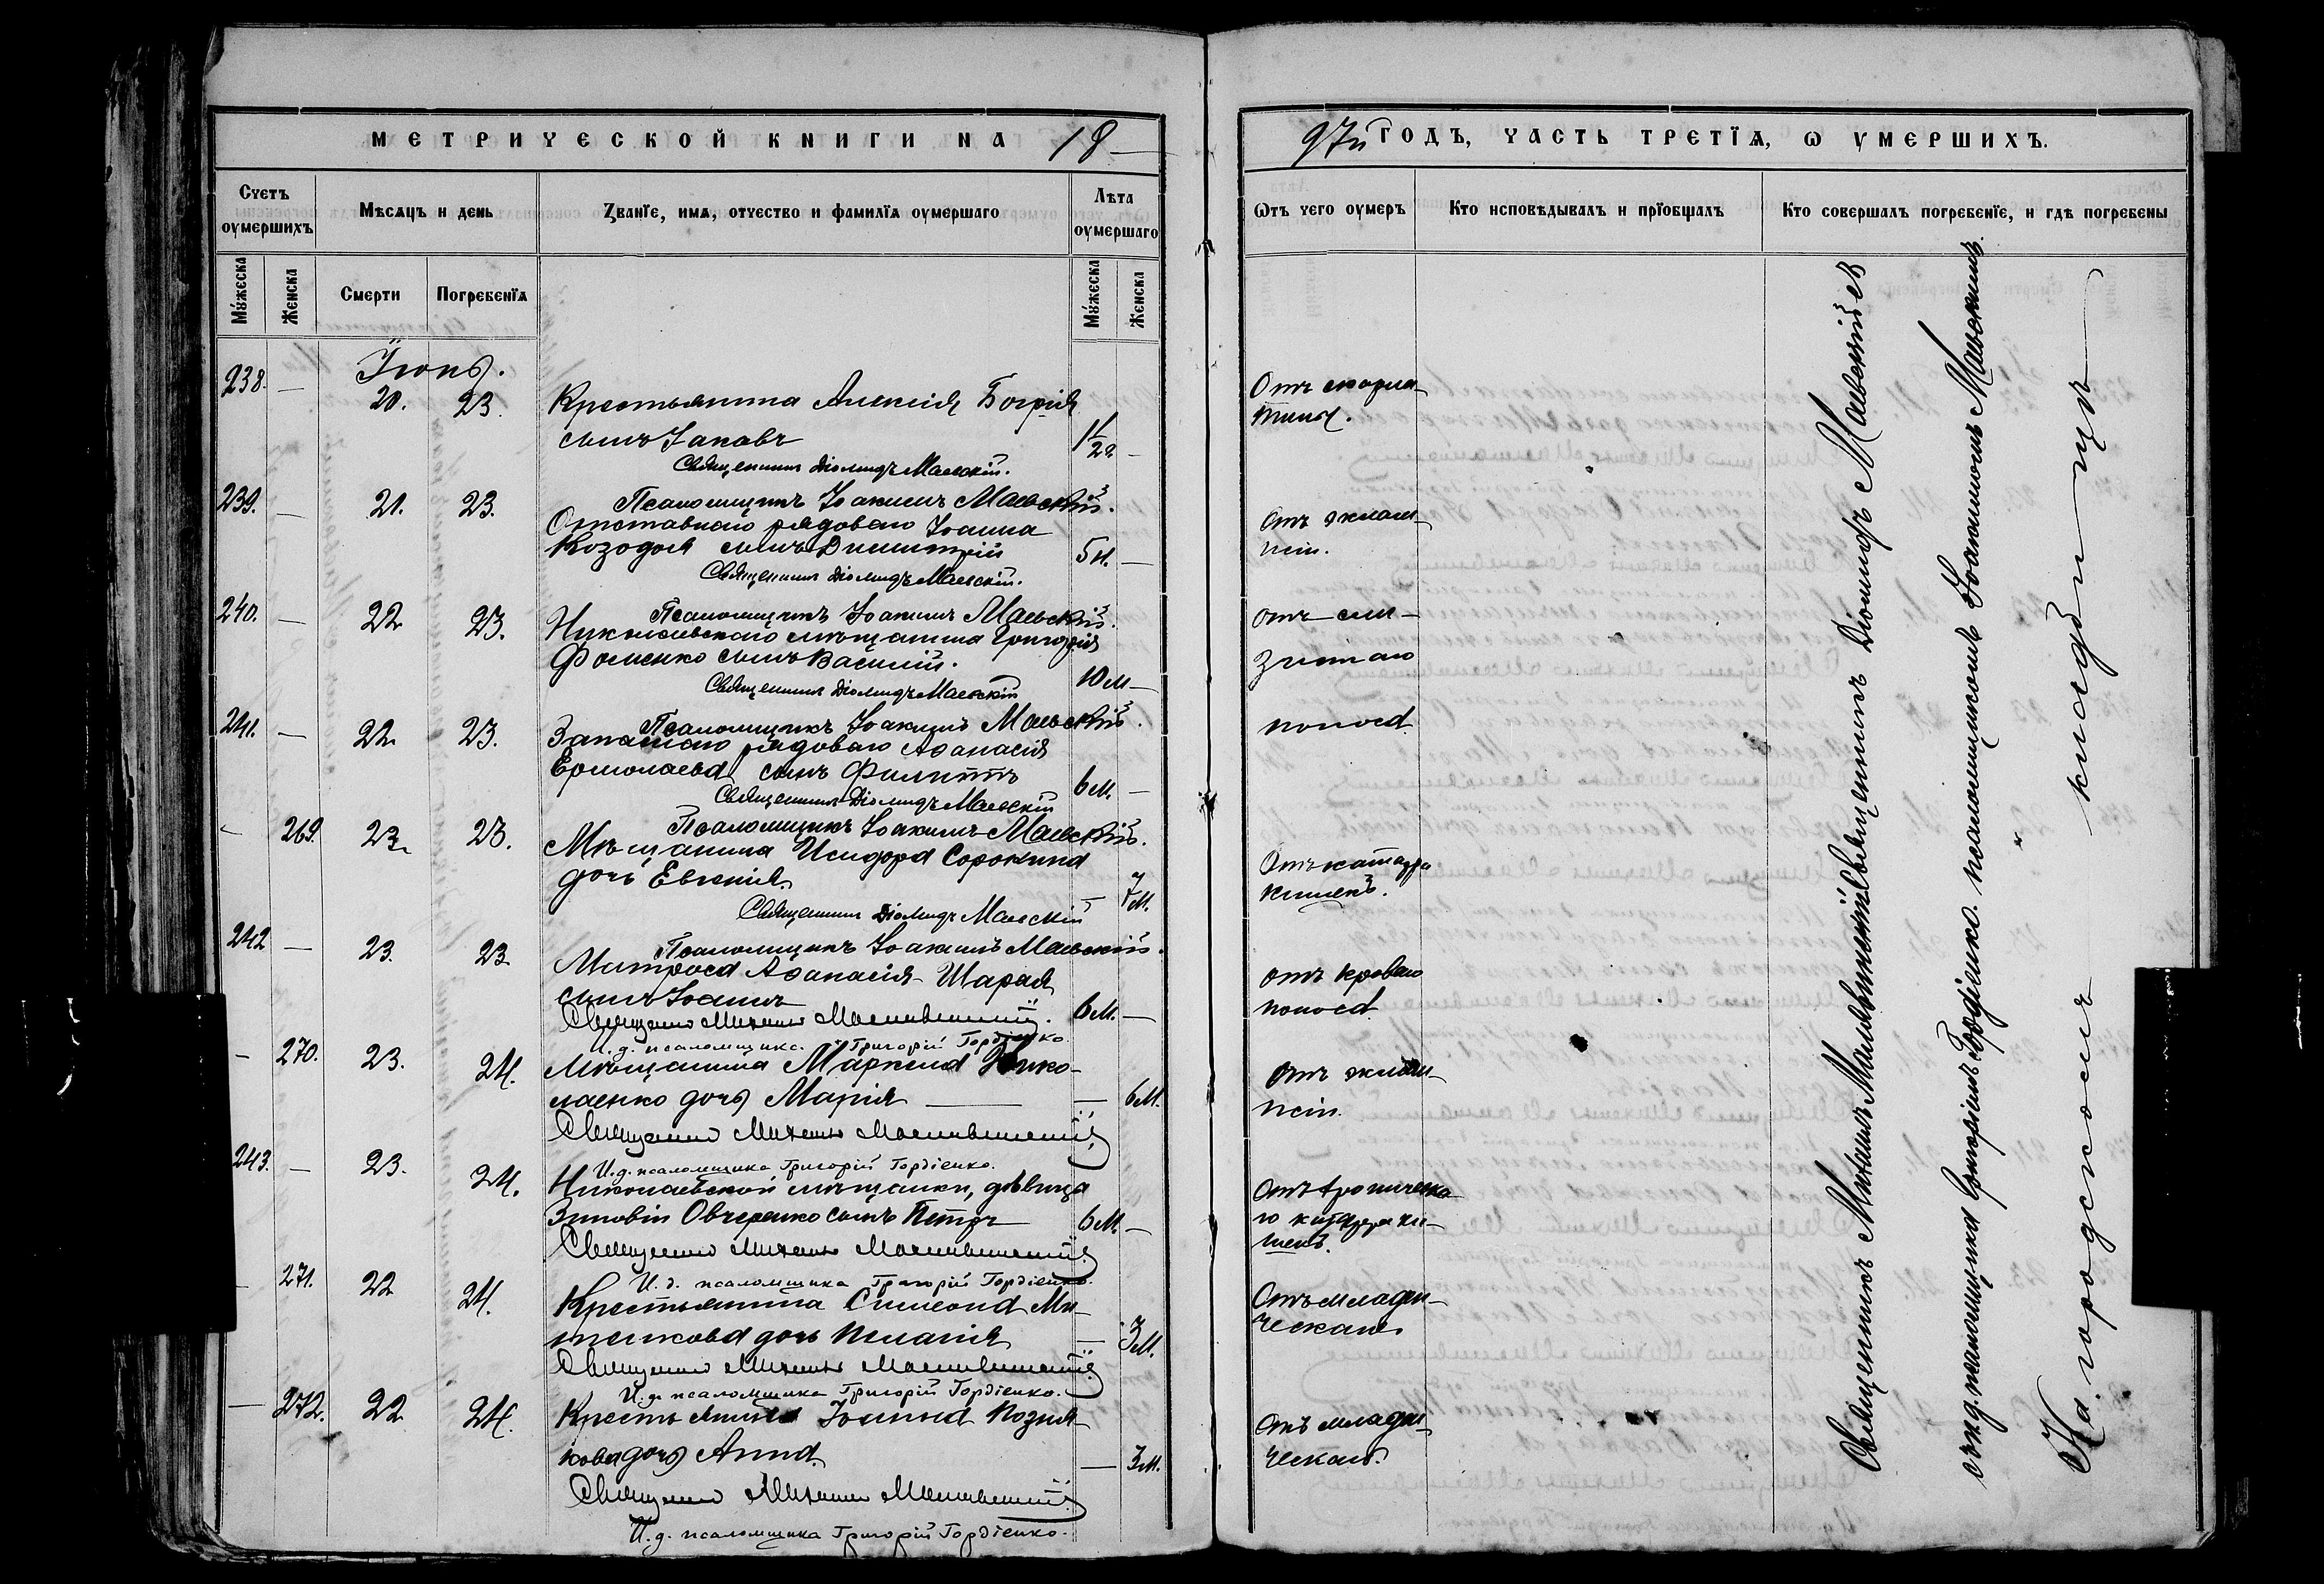 МЕТРИЧЕСКОЙ КНИГИ НА 18
97й ГОДЪ, ЧАСТЬ ТРЕТІЯ, Ѡ УМЕРШИХЪ.
Счетъ оумершихъ
Мѣсяцъ и день
Званїе, имя, отчество и фамилїя оумершаго
Лѣта оумершаго
Ѿтъ чего оумеръ
Кто исповѣдывалъ и прїобщалъ
Кто совершалъ погребенїе, и гдѣ погребены
Мужеска
Женска
Смерти
Погребенїя
Мужеска
Женска
Іюнь.
238. — 20. 23. Крестьянина Алексія Богрія
сынъ Іаковъ 1 1/2 г. —
Отъ скарла-
тины.
Священникъ Діомидъ Маевскій.
Псаломщикъ Іоакимъ Маевскій.
239. — 21. 23. Отставнаго рядоваго Іоанна
Козодоя сынъ Димитрій 5 н. —
Отъ эклам-
псіи.
Священникъ Діомидъ Маевскій.
Псаломщикъ Іоакимъ Маевскій.
240. — 22 23. Николаевскаго мѣщанина Григорія
Фоменко сынъ Василій. 10 м —
Отъ сли-
зистаго
поноса
Священникъ Діомидъ Маевскій
Псаломщикъ Іоакимъ Маевскій.
241. — 22. 23. Запаснаго рядоваго Аѳанасія
Ермолаева сынъ Филиппъ 6 м. —
Священникъ Діомидъ Маевскій
Псаломщикъ Іоакимъ Маевскій.
— 269. 23. 23. Мѣщанина Исидора Сорокина
дочь Евгенія — 7 м.
Отъ катарра
кишекъ.
Священникъ Діомидъ Маевскій
Псаломщикъ Іоакимъ Маевскій.
242 — 23. 23. Матроса Аѳанасія Шарая
сынъ Іоаннъ 6 м. —
Отъ кроваго
поноса
Священникъ Михаилъ
И. д. псаломщика Григорій Гордіенко.
— 270. 23. 24. Мѣщанина Маркела Нико-
лаенко дочь Марія — 6 м.
Отъ эклам-
псіи.
Священникъ Михаилъ
И. д. псаломщика Григорій Гордіенко.
243. — 23. 24. Николаевской мѣщанки, дѣвицы
Зиновіи Овчеренко сынъ Петръ 6 м. —
Отъ хроническа-
го катарра ки-
шекъ.
Священникъ Михаилъ
И. д. псаломщика Григорій Гордіенко.
— 271. 22 24. Крестьянина Симеона Ми-
дочь Пелагія — 3 м.
Отъ млади-
ческаго
Священникъ Михаилъ
И. д. псаломщика Григорій Гордіенко.
— 272. 22 24. Крестьянина Іоанна Позня-
кова дочь Анна — 3 м.
Отъ млади-
ческаго.
Священникъ Михаилъ
И. д. псаломщика Григорій Гордіенко.
Священникъ Діомидъ Маевскій съ
псаломщикомъ Іоакимомъ Маевскимъ.
Священникъ Михаилъ
съ и. д. псаломщика Григоріемъ Гордіенко.
На городскомъ кладбищѣ